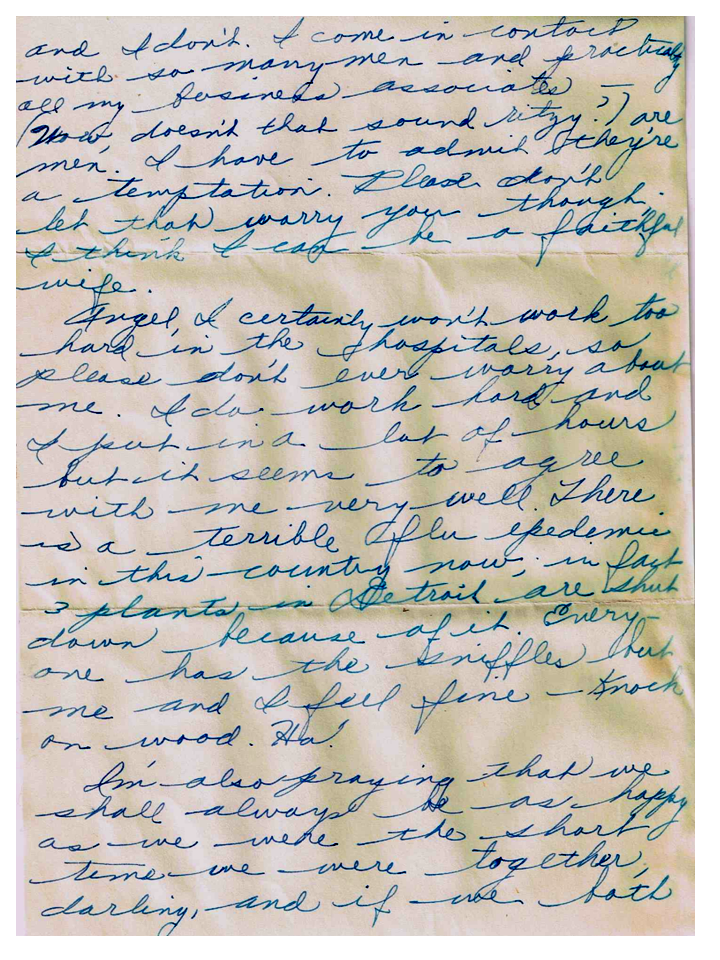 and I don't. I come in contact
with so many men and practically
all my business associates -
(Wow, doesn't that sound ritzy?) are
men. I have to admit they're
a temptation. Please don't
let that worry you though.
I think I can be a faithful
wife.
Angel, I certainly won't work too
hard in the hospitals, so
please don't ever worry about
me. I do work hard and
I put in a lot of hours
but it seems to agree
with me very well. There
is a terrible flu epedemic
in this country now, in fact
3 plants in Detroit are shut
down because of it. Every-
one has the sniffles but
me and I feel fine - Knock
on wood. Ha!
I'm also praying that we
shall always be as happy
as we were the short
time we were together,
darling, and if we both